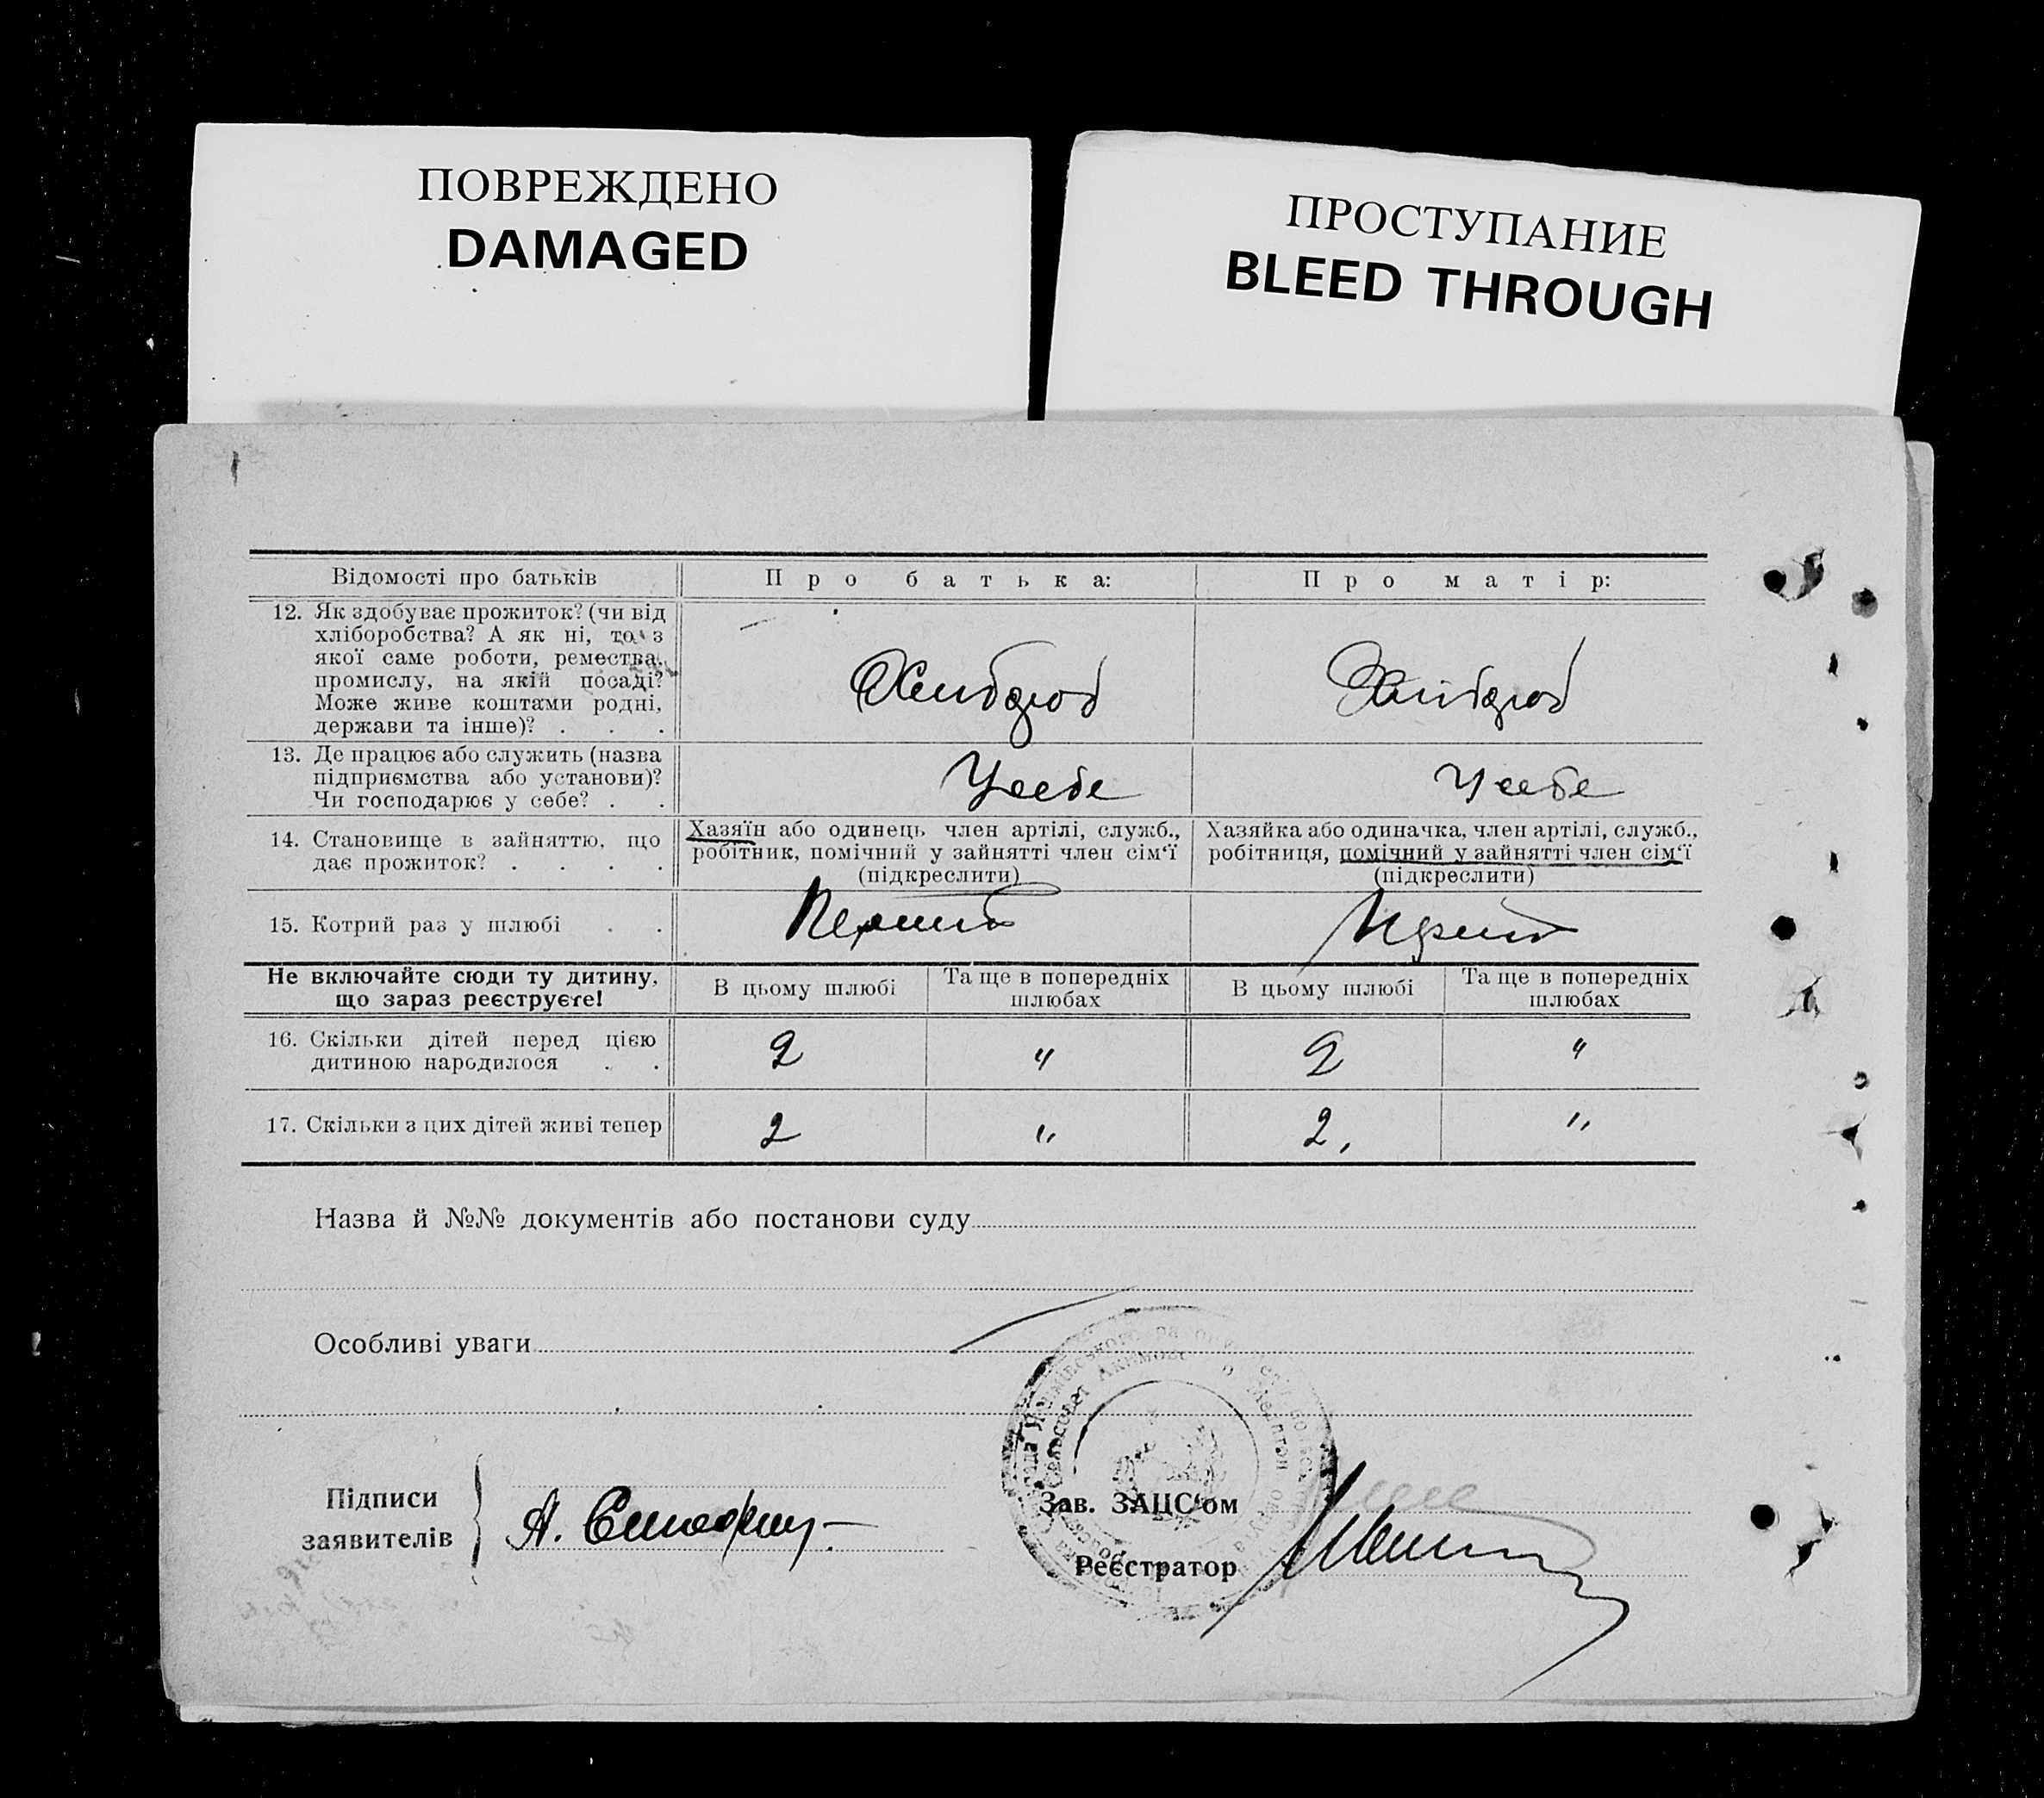 ПОВРЕЖДЕНО
DAMAGED
ПРОСТУПАНИЕ
BLEED THROUGH
Відомості про батьків
Про батька:
Про матір:
12. Як здобуває прожиток? (чи від
хліборобства? А як ні, то з
якої саме роботи, ремества,
промислу, на якій посаді?
Може живе коштами родні,
держави та інше)? . . .
Хлибороб
Хлибороб
13. Де працює або служить (назва
підприємства або установи)?
Чи господарює у себе? . .
У себе
У себе
14. Становище в зайняттю, що
дає прожиток? . . . .
Хазяїн або одинець член артілі, служб.,
робітник, помічний у зайнятті член сім'ї
(підкреслити)
Хазяйка або одиначка, член артілі, служб.,
робітниця, помічний у зайнятті член сім'ї
(підкреслити)
15. Котрий раз у шлюбі . .
Не включайте сюди ту дитину,
що зараз реєструєте!
В цьому шлюбі
Та ще в попередніх
шлюбах
В цьому шлюбі
Та ще в попередніх
шлюбах
16. Скільки дітей перед цією
дитиною народилося . .
2
"
2
"
17. Скільки з цих дітей живі тепер
2
"
2,
"
Назва й №№ документів або постанови суду
Особливі уваги
Підписи
заявителів
А.
Зав. ЗАЦС'ом
Реєстратор